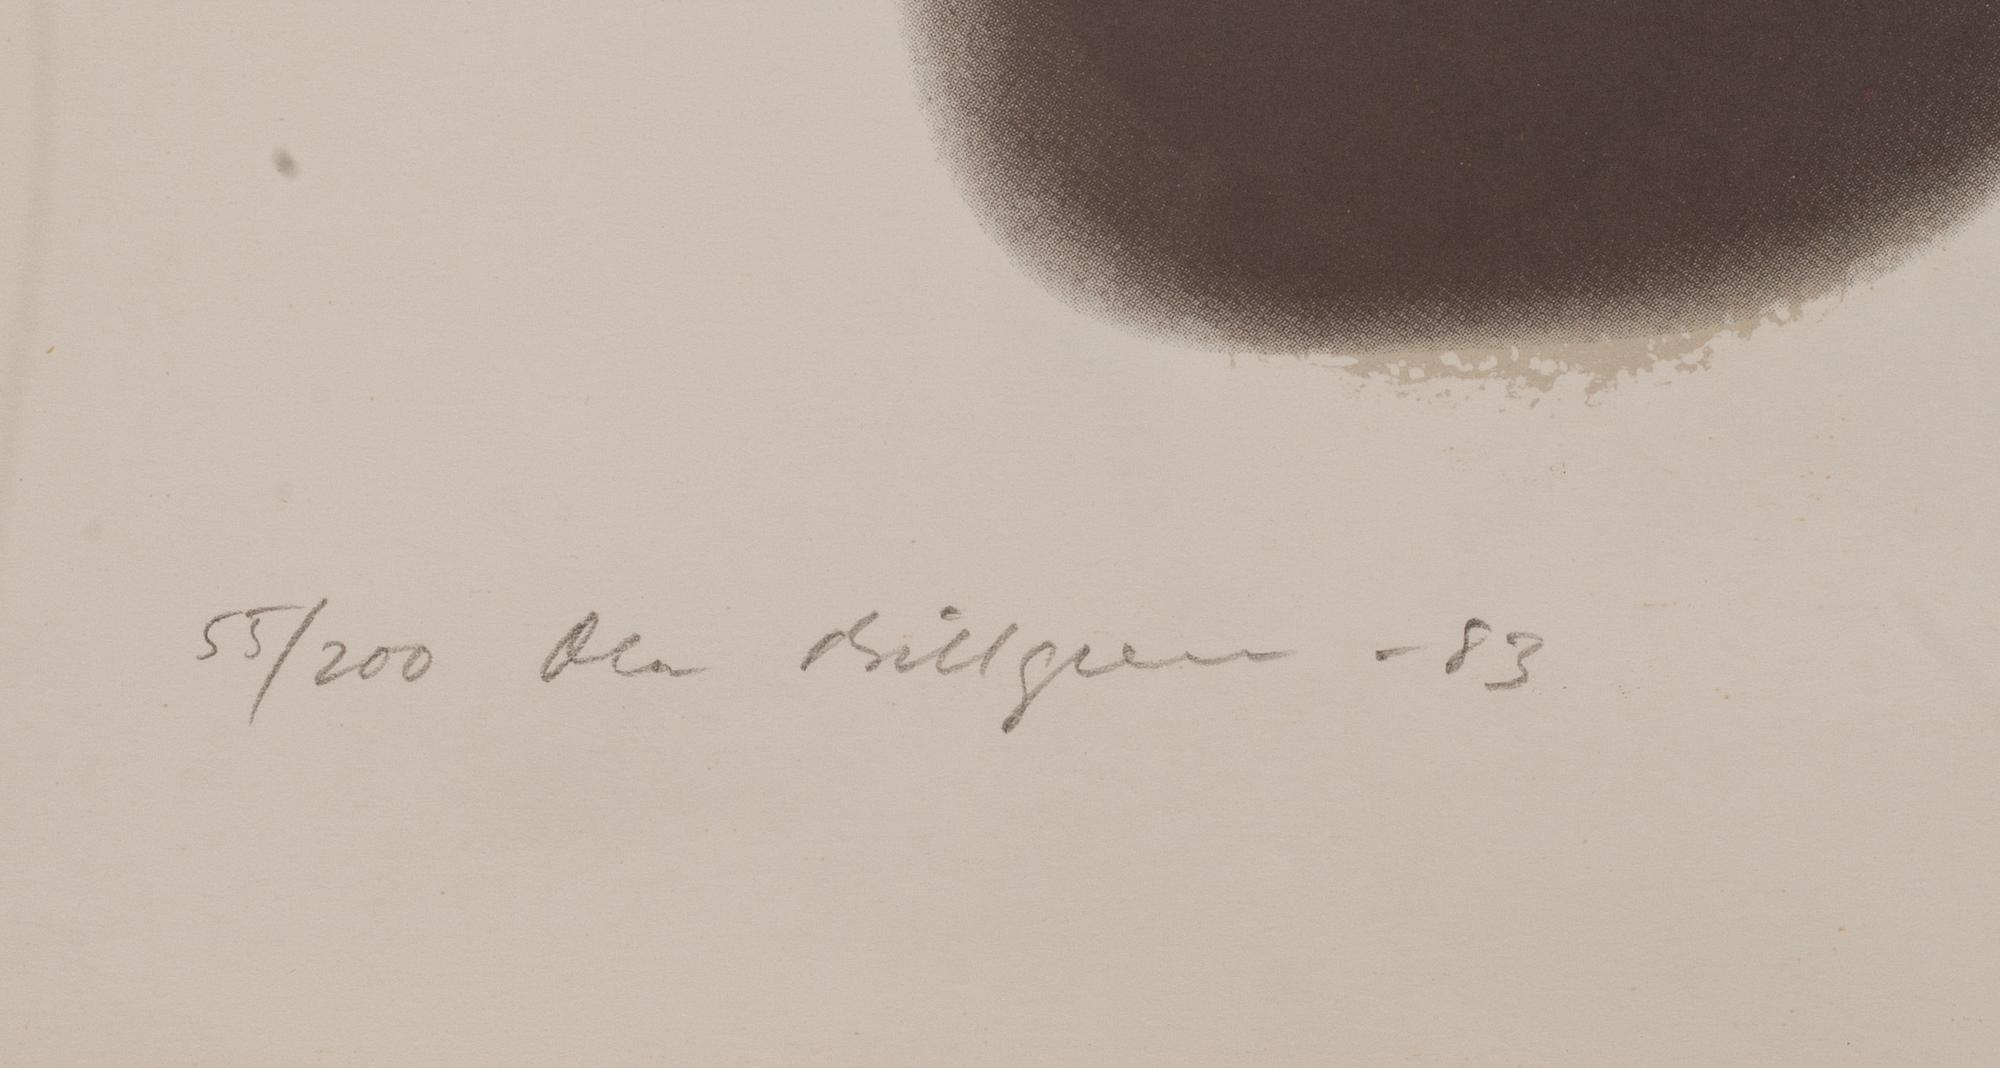 55/200 Ola Billgren -83